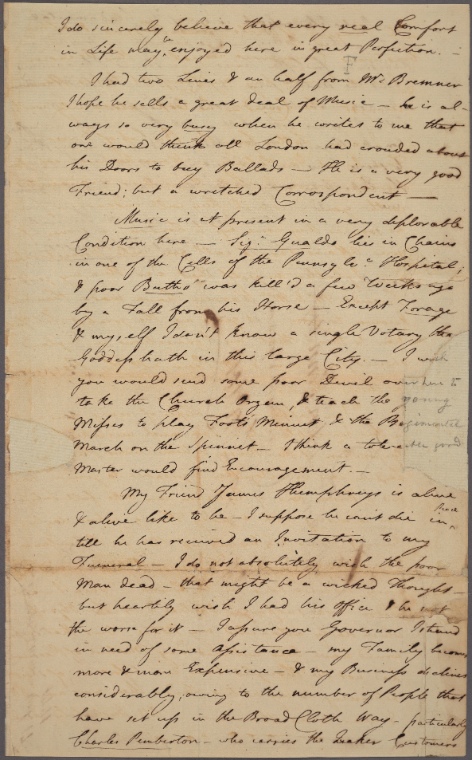 I do sincerely believe that every real Comfort
in Life may be enjoyed here in great Perfection. —
I had two Lines & an half from Mr. Bremner
I hope he sells a great deal of Music — he is al-
ways so very busy when he writes to me that
one would think all London had crouded about
his Doors to buy Ballads — He is a very good
Friend; but a wretched Correspondent —
Music is at present in a very deplorable
Condition here — Sigr. Gualdo lies in Chains
in one of the Cells of the Pennsyla. Hospital;
& poor was kill'd a few Weeks ago
by a Fall from his Horse — Except Forage
& myself I don't know a single Votary the
Goddess hath in this large City. — I wish
you would send some poor Devil over here to
take the Church Organ, & teach the young
Misses to play Foots Minuet & the
March on the Spinnet — I think a tolerable good
Master would find Encouragement. —
My Friend James Humphreys is alive
& alive like to be — I suppose he can't die in Peace
till he has received an Invitation to my
Funeral — I do not absolutely wish the poor
Man dead — that might be a wicked Thought —
but heartily wish I had his Office & he not
the worse for it — I assure you Governor I stand
in need of some Assistance — my Family becomes
more & more Expensive — & my Business declines
considerably, owing to the number of People that
have set up in the Broad Cloth Way — particularly
Charles Pemberton — who carries the Quaker Customers